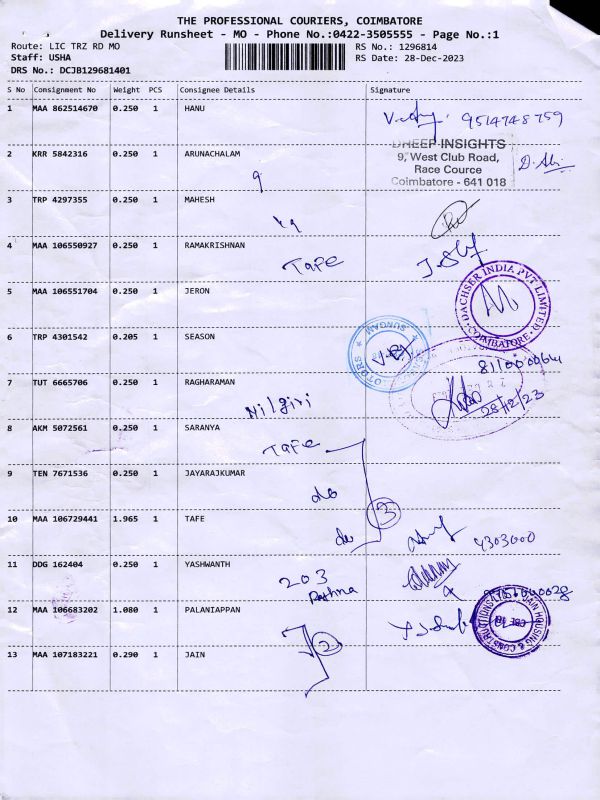 THE PROFESSIONAL COURIERS, COIMBATORE
Delivery Runsheet - MO - Phone No.:0422-3505555 - Page No.:1
Route: LIC TRZ RD MO
RS No.: 1296814
Staff: USHA
RS Date: 28-Dec-2023
DRS No.: DCJB129681401
S No Consignment No Weight PCS Consignee Details Signature
1 MAA 862514670 0.250 1 HANU
9514748759
2 KRR 5842316 0.250 1 ARUNACHALAM
9
DHEEP INSIGHTS
9, West Club Road,
Race Cource
Coimbatore - 641 018
3 TRP 4297355 0.250 1 MAHESH
4 MAA 106550927 0.250 1 RAMAKRISHNAN
TAFE
5 MAA 106551704 0.250 1 JERON
DACHSER INDIA PVT LIMITED
COIMBATORE
6 TRP 4301542 0.205 1 SEASON
SUNGAM
7 TUT 6665706 0.250 1 RAGHARAMAN
Nilgiri
28/12/23
8 AKM 5072561 0.250 1 SARANYA
TAFE
9 TEN 7671536 0.250 1 JAYARAJKUMAR
do
3
10 MAA 106729441 1.965 1 TAFE
do
4303000
11 DDG 162404 0.250 1 YASHWANTH
203
12 MAA 106683202 1.080 1 PALANIAPPAN
2
JAIN HOUSING & CONSTRUCTIONS
13 MAA 107183221 0.290 1 JAIN